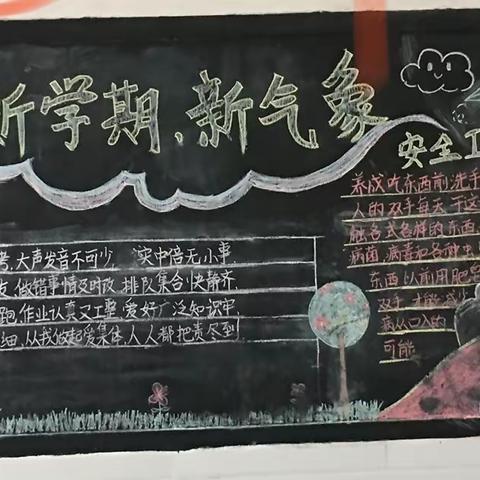 新学期、新气象
安全卫
考,大声发音不可少 集中倍无小事
友,做错事情及时改,排队集合快静齐,
跑,作业认真又工整,爱好广泛知识牢
细.从我做起爱集体,人人都把责尽到
养成吃东西前洗手
人的双手每天干这
触各式各样的东西
病菌、病毒和各种虫
东西以前用肥皂
双手,才能减少
病从口入的
可能